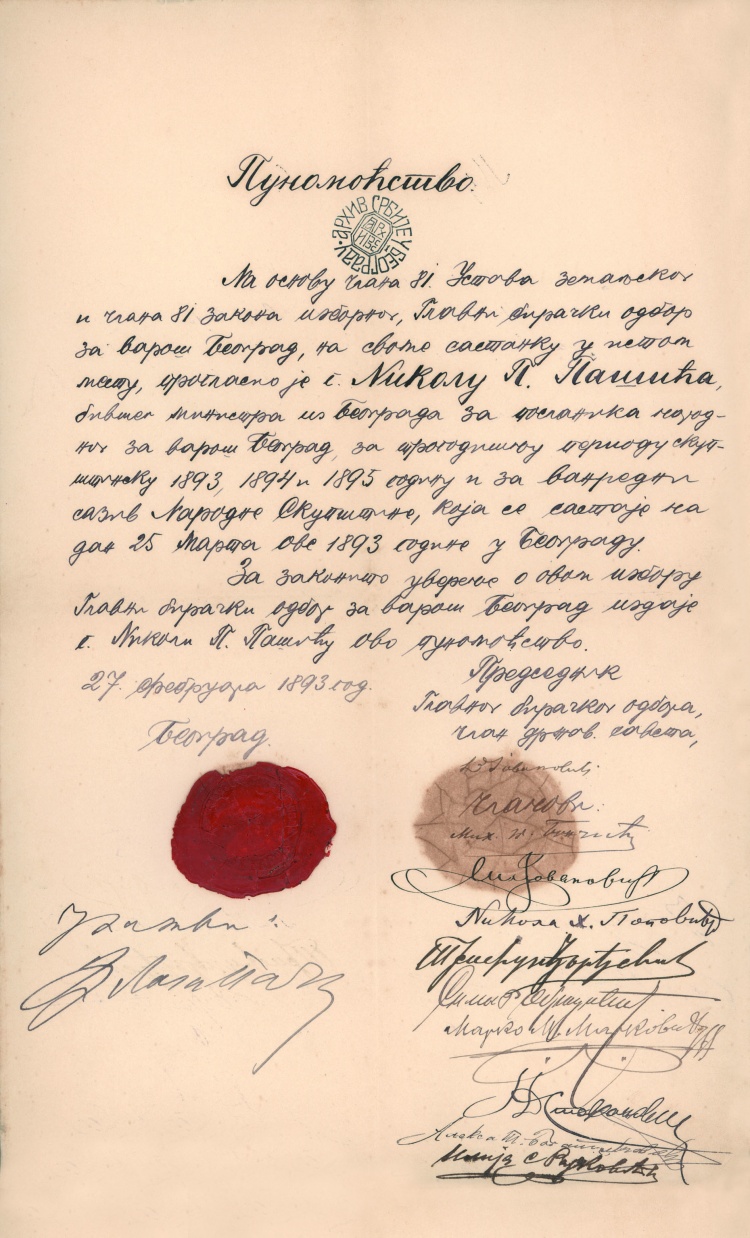 Пуномоћство.
АРХИВ СРБИЈЕ У БЕОГРАДУ
На основу члана 81. Устава земаљског
и члана 81 закона изборног, Главни бирачки одбор
за варош Београд, на своме састанку у истом
месту, прогласио је г. Николу П. Пашића,
бившег министра из Београда за посланика народ-
ног за варош Београд, за трогодишњу периоду скуп-
штинску 1893, 1894 и 1895 годину и за ванредни
сазив Народне Скупштине, која се састаје на
дан 25 Марта ове 1893 године у Београду.
За законито уверење о овом избору
Главни бирачки одбор за варош Београд издаје
г. Николи П. Пашићу ово пуномоћство.
27. Фебруара 1893 год.
Београд.
Председник
Главног бирачког одбора,
члан држав. савета,
Јовановић
Чланови:
Мих.
Јовановић
Никола Х. Поповић
Ђорђевић
Сима
Марко М. Марковић
Алекса
Илија